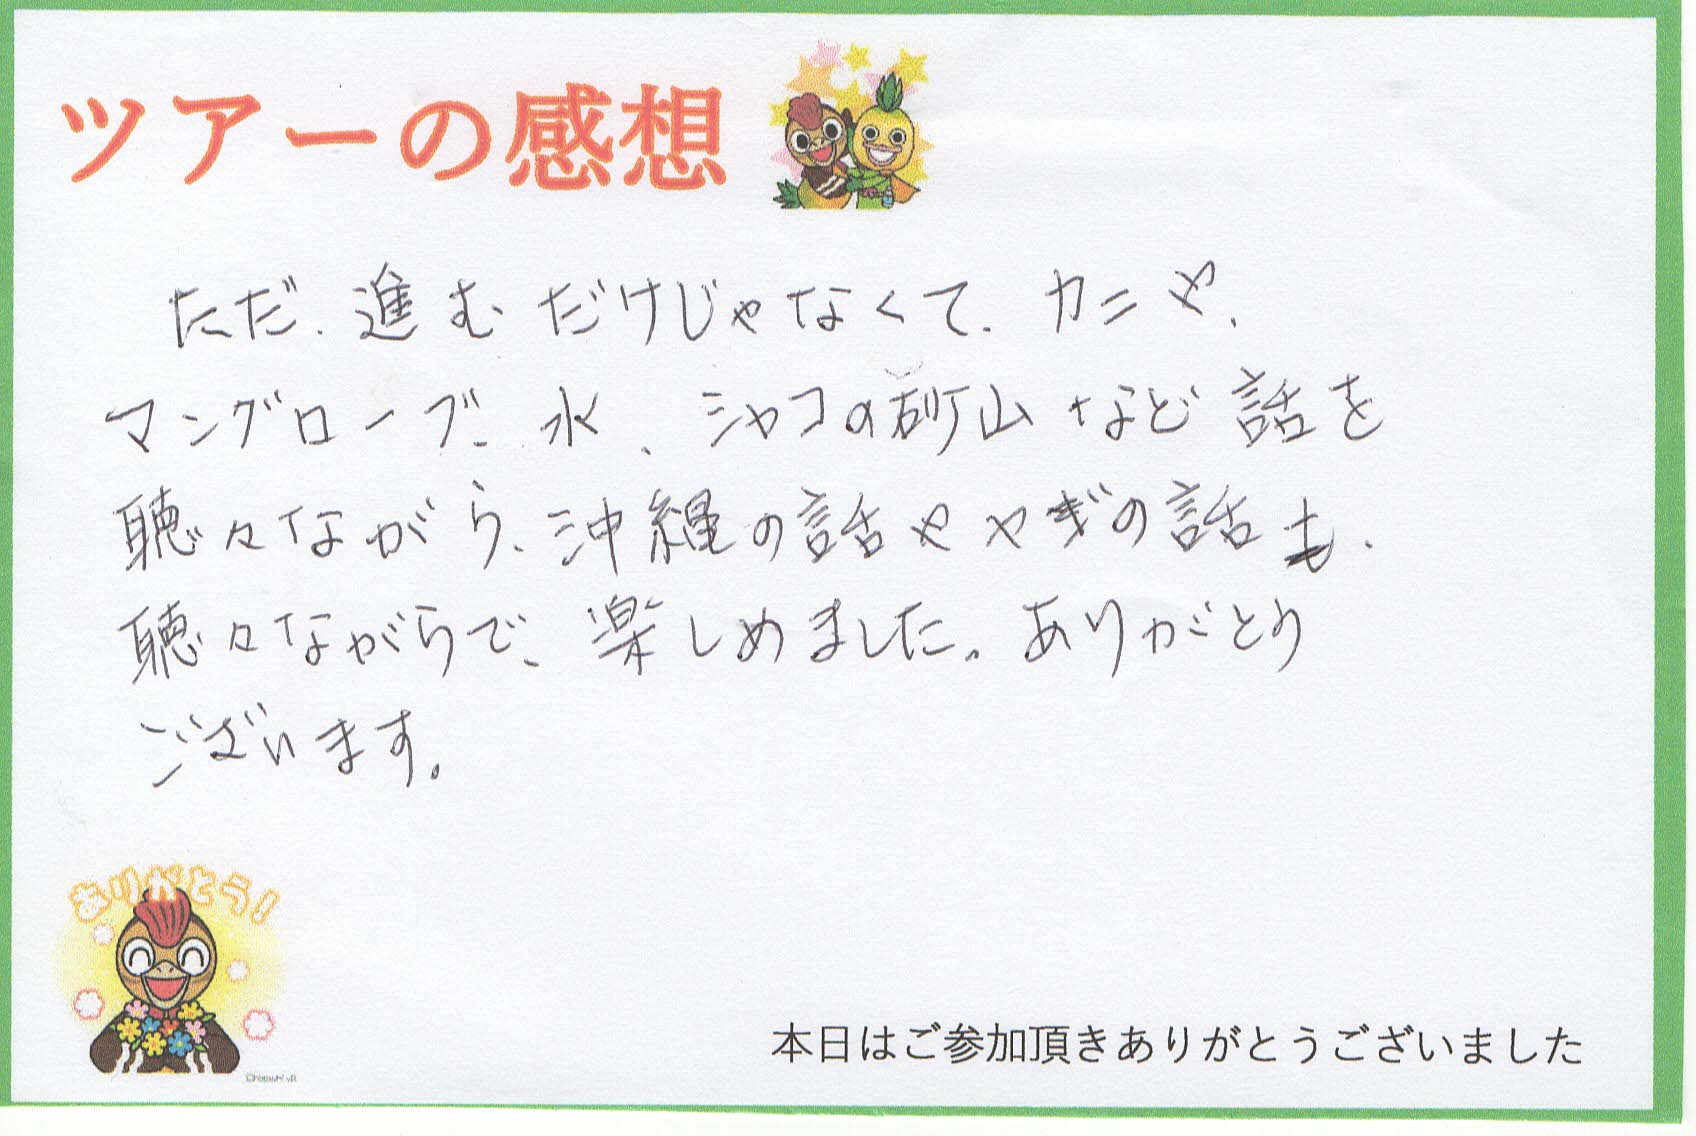 ツアーの感想
ただ、進むだけじゃなくて、カニや、
マングローブ、水、シャコの砂山など話を
聴々ながら、沖縄の話やヤギの話も、
聴々ながらで、楽しめました。ありがとう
ございます。
ありがとう!
本日はご参加頂きありがとうございました